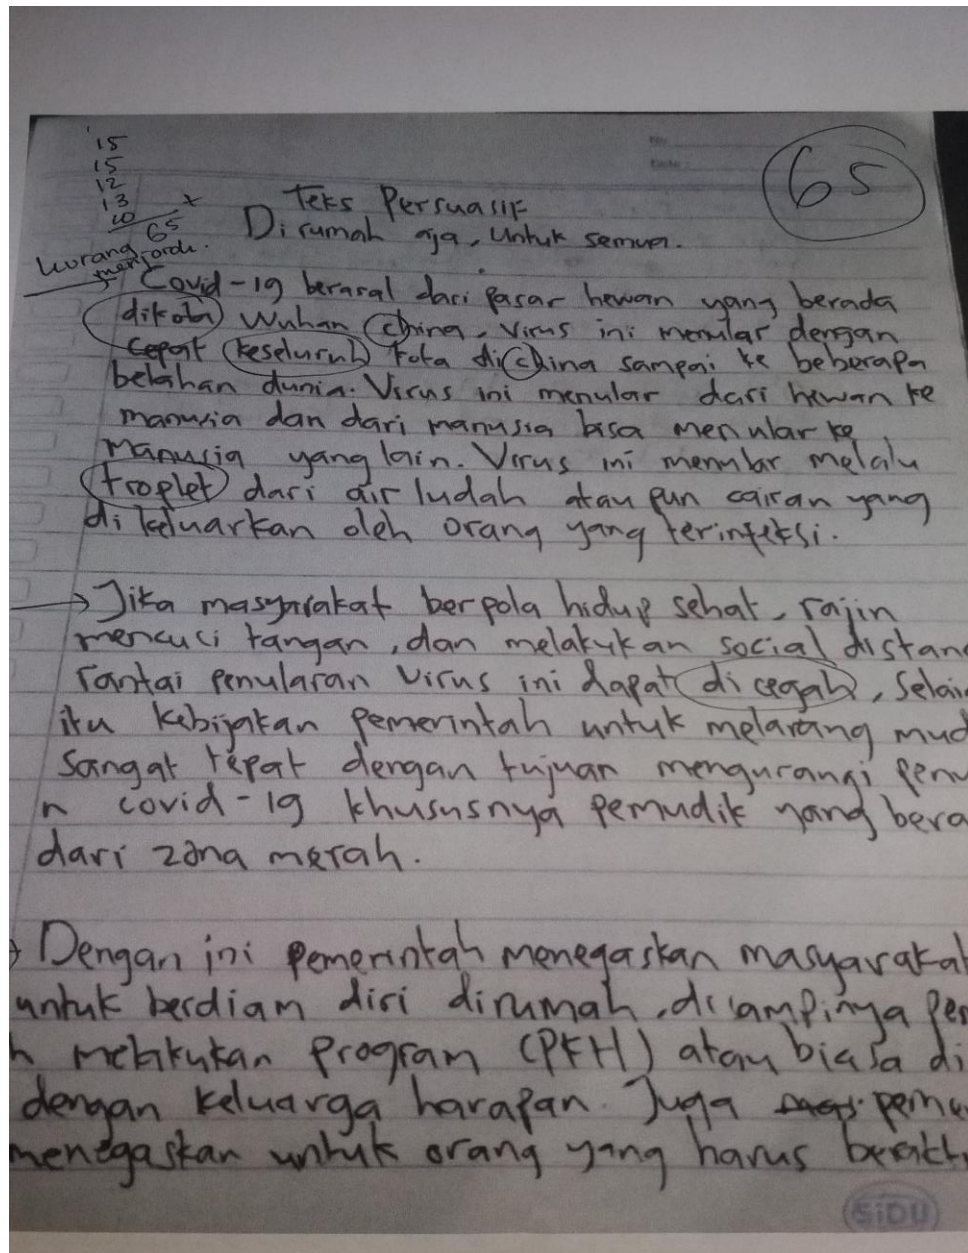 15
15
12
13
10 +
65
65
Kurang
menjorok.
Teks Persuasif
Dirumah aja, Untuk semua.
Covid-19 berasal dari pasar hewan yang berada
dikota Wuhan china. Virus ini menular dengan
cepat keseluruh kota di china sampai ke beberapa
belahan dunia. Virus ini menular dari hewan ke
manusia dan dari manusia bisa menular ke
Manusia yang lain. Virus ini menular melalu
troplet dari air ludah atau pun cairan yang
di keluarkan oleh orang yang terinfeksi.
Jika masyarakat berpola hidup sehat, rajin
mencuci tangan, dan melakukan social distan
rantai penularan virus ini dapat di cegah, Selain
itu kebijakan pemerintah untuk melarang mud
Sangat tepat dengan tujuan mengurangi penu
n covid-19 khususnya pemudik yang bera
dari zona merah.
Dengan ini pemerintah menegaskan masyarakat
untuk berdiam diri dirumah, disampinya pem
h melakukan program (PKH) atau biasa di
dengan keluarga harapan. Juga peme
menegaskan untuk orang yang harus berakti
SiDU